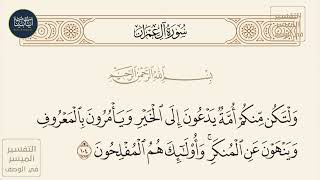 سُورَةُ آلِ عِمْرَان
بِسْمِ اللَّهِ الرَّحْمَٰنِ الرَّحِيمِ
وَلْتَكُن مِّنكُمْ أُمَّةٌ يَدْعُونَ إِلَى الْخَيْرِ وَيَأْمُرُونَ بِالْمَعْرُوفِ
وَيَنْهَوْنَ عَنِ الْمُنكَرِ ۚ وَأُولَٰئِكَ هُمُ الْمُفْلِحُونَ ١٠٤
التفسير
الميسر
في الوصف